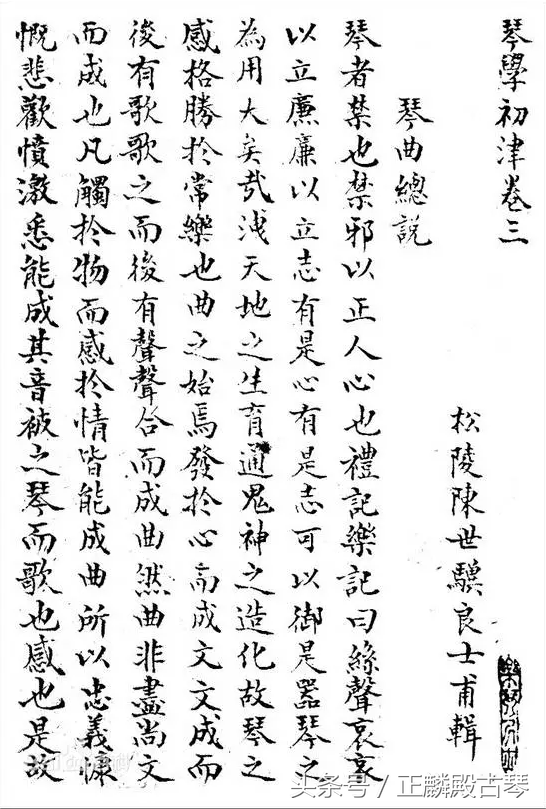 琴學初津卷三
松陵陳世驥良士甫輯
琴曲總說
琴者禁也禁邪以正人心也禮記樂記曰絲聲哀哀
以立廉廉以立志有是心有是志可以御是器琴之
為用大矣哉洩天地之生育通鬼神之造化故琴之
感格勝於常樂也曲之始焉發於心而成文文成而
後有歌歌之而後有聲聲合而成曲然曲非盡尚文
而成也凡觸於物而感於情皆能成曲所以忠義慷
慨悲歡憤激悉能成其音被之琴而歌也感也是故
头条号 / 正麟殿古琴